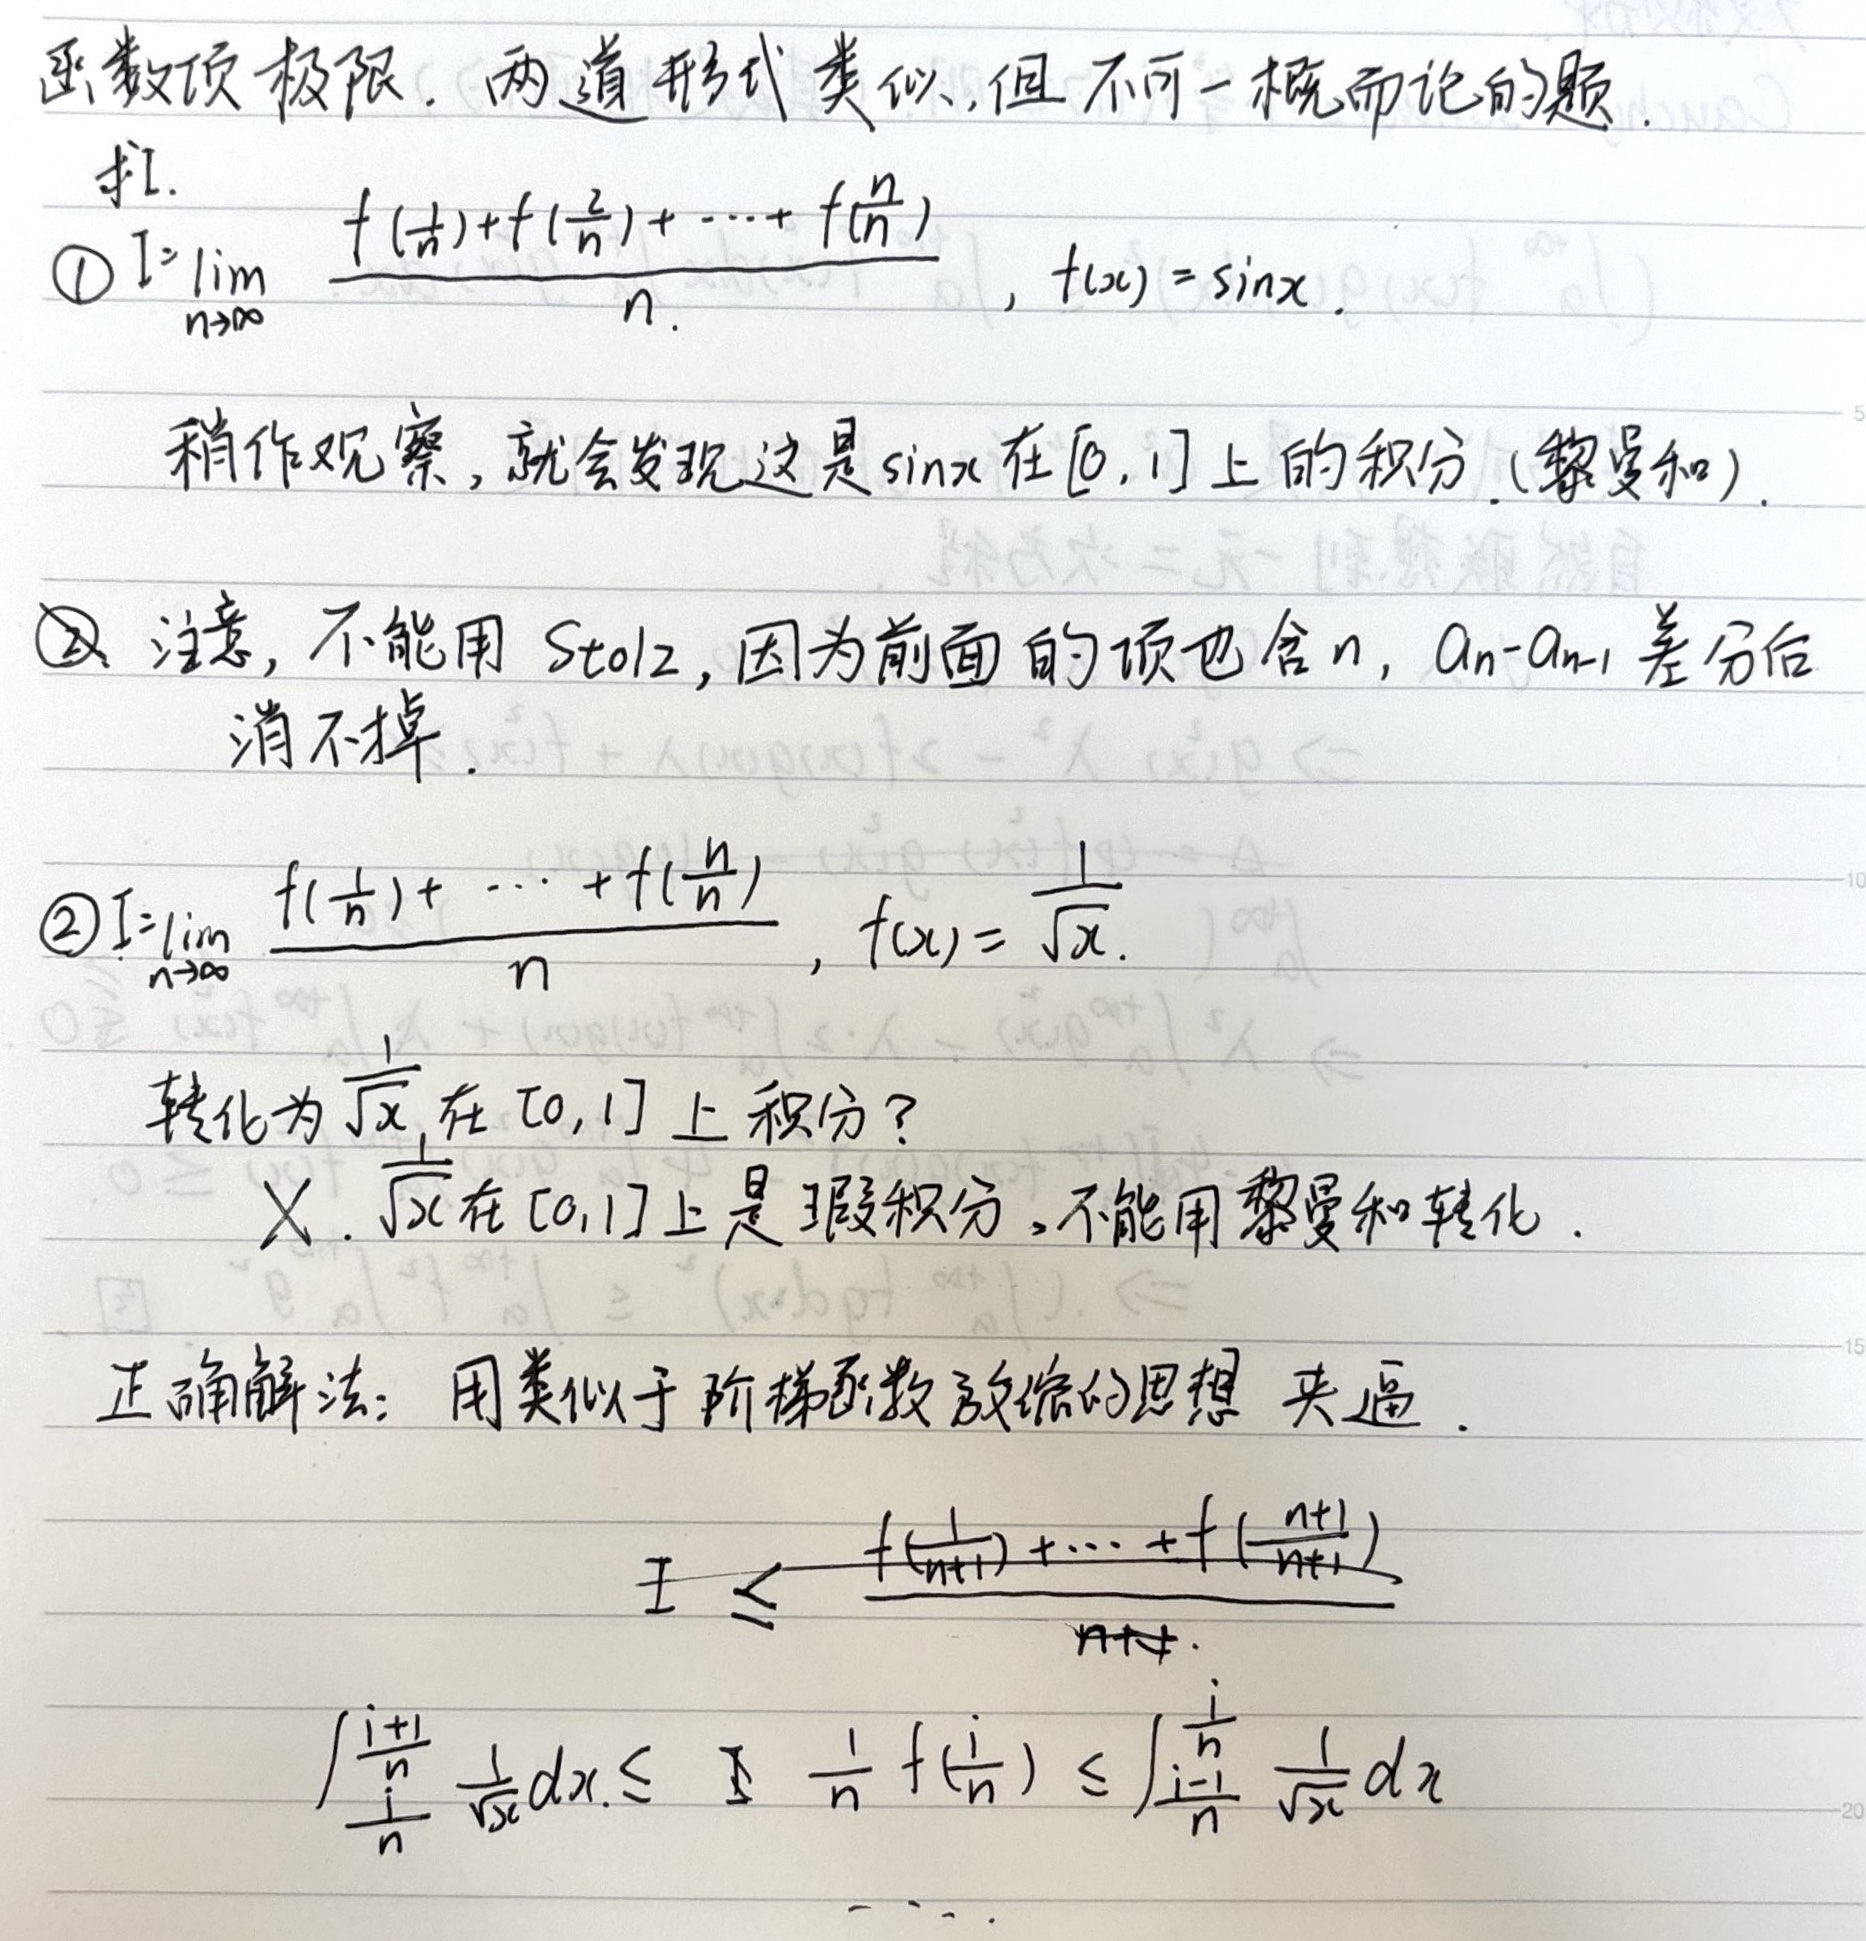 函数项极限. 两道形式类似,但不可一概而论的题.
求I.
① I=lim n→∞ (f(1/n)+f(2/n)+⋯+f(n/n))/n. , f(x)=sinx.
稍作观察,就会发现这是sinx在[0,1]上的积分.(黎曼和).
注意,不能用Stolz,因为前面的项也含n, aₙ-aₙ₋₁差分后
消不掉.
② I=lim n→∞ (f(1/n)+⋯+f(n/n))/n , f(x)=1/√x.
转化为1/√x在[0,1]上积分?
X. 1/√x在[0,1]上是瑕积分,不能用黎曼和转化.
正确解法: 用类似于阶梯函数放缩的思想 夹逼.
I ≤ (f(1/(n+1))+⋯+f((n+1)/(n+1)))/(n+1).
∫_{i/n}^{(i+1)/n} 1/√x dx.≤ 1/n f(i/n) ≤ ∫_{(i-1)/n}^{i/n} 1/√x dx
⋯.